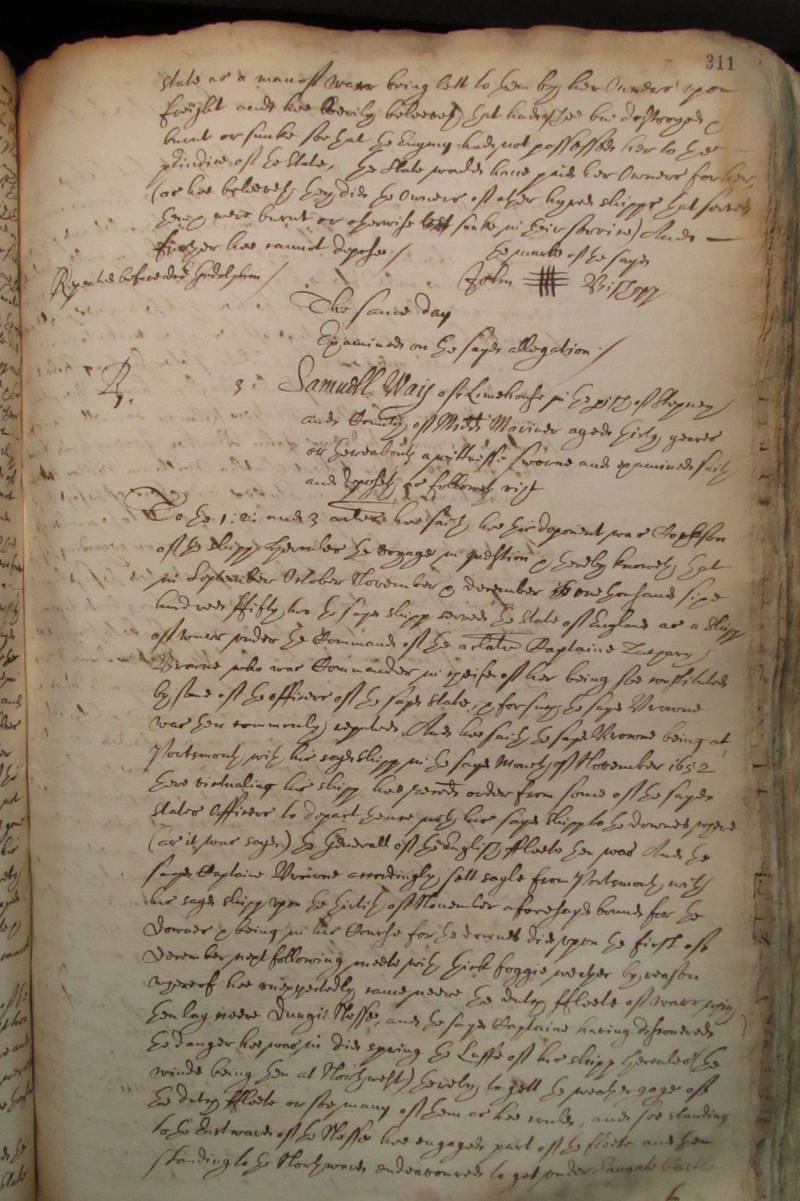 311
state as a man of warr being lett to them by her Owners upon
freight and hee verily beleeveth that had shee bin destroyed
burnt or sunke soe that the Enemy had not possessed her to the
prejudice of the State, the State would have paid her Owners for her,
(as hee beleeveth they did the Owners of other hyred shipps that served
them were burnt or otherwise lost sunke in their service) And
further hee cannot depose /
The marke of the sayd
John Bishopp
Repeated before doctor Godolphin /
The same day
Examined on the sayd allegation /
R. 3. Samuell Ways of Limehouse in the parish of Stepney
and County of Midd Mariner aged thirty yeares
or thereabouts a wittnesse sworne and examined saith
and deposeth as followeth vizt
To the 1: 2: and 3 articles hee saith hee this deponent was
of the shipp Hercules the voyage in question & thereby knoweth that
in September October November & December one thousand sixe
hundred fifty two the sayd shipp served the State of England as a shipp
of warr under the Command of the articulate Captaine
Browne who was Commander in cheife of her being soe constituted
by some of the officers of the sayd State, & for such the sayd Browne
was then commonly reputed, And hee saith the sayd Browne being at
Portsmouth with his sayd shipp in the sayd Moneth of November 1652
there victualing his shipp hee received order from some of the sayd
States Officers to depart thence with his sayd shipp to the downes where
(as it was sayd) the Generall of the English ffleete then was And the
sayd Captaine Browne accordingly sett sayle from Portsmouth with
his sayd shipp upon the thirtith of November aforesayd bound for the
Downes & being in his Course for the downes did upon the first of
December next following meete with thick foggie weather by reason
whereof hee unexpectedly came neere the dutch ffleete of warr which
then lay neere Dungie Nesse, and the sayd Captaine having discovered
the danger hee was in did spring the Luffe of his shipp Hercules (the
winde being then at Northwest) thereby to gett the weather gage of
the dutch ffleete or soe many of them as hee could, and soe standing
to the Eastward of the Nesse hee engaged part of the fleete and then
standing to the Northward endeavoured to get under Sangate Castle